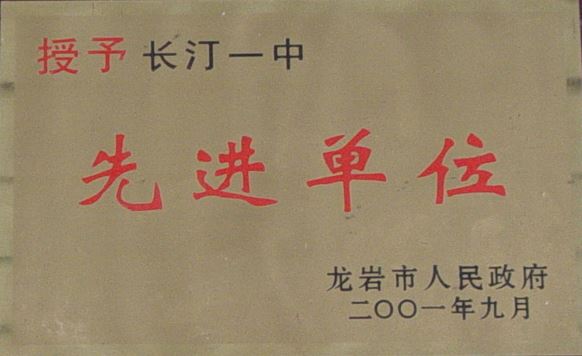 授予 长汀一中
先进单位
龙岩市人民政府
二〇〇一年九月